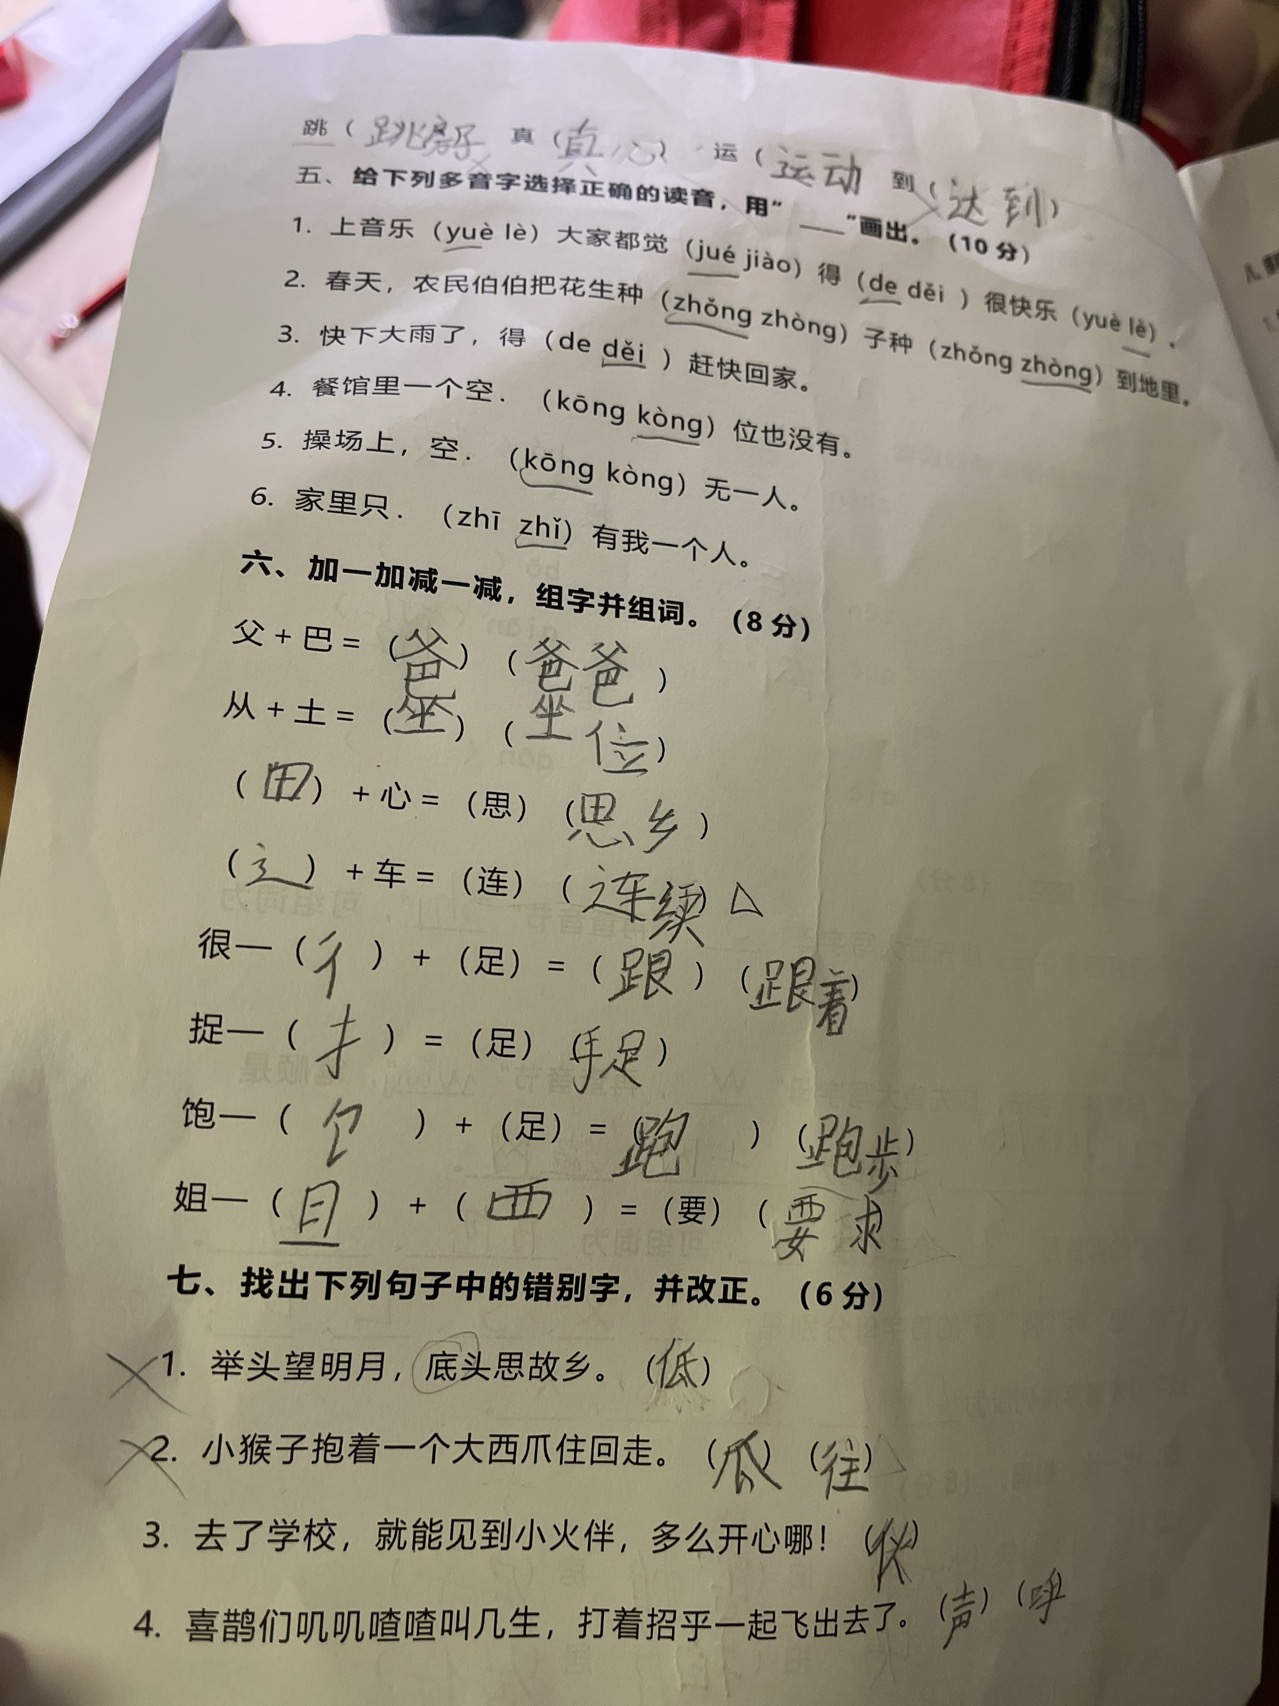 跳（跳房子 真（真心） 运（运动 到（达到）
五、给下列多音字选择正确的读音，用“___”画出。（10分）
1. 上音乐（yuè lè）大家都觉（jué jiào）得（de děi ）很快乐（yuè lè）。
2. 春天，农民伯伯把花生种（zhǒng zhòng）子种（zhǒng zhòng）到地里。
3. 快下大雨了，得（de děi ）赶快回家。
4. 餐馆里一个空．（kōng kòng）位也没有。
5. 操场上，空．（kōng kòng）无一人。
6. 家里只．（zhī zhǐ）有我一个人。
六、加一加减一减，组字并组词。（8分）
父+巴=（爸）（爸爸）
从+土=（坐）（坐位）
（田）+心=（思）（思乡）
（辶）+车=（连）（连续）
很一（彳）+（足）=（跟）（跟着）
捉一（扌）=（足）（手足）
饱一（饣）+（足）=（跑）（跑步）
姐一（且）+（西）=（要）（要求）
七、找出下列句子中的错别字，并改正。（6分）
1. 举头望明月，底头思故乡。（低）
2. 小猴子抱着一个大西爪住回走。（瓜）（往）
3. 去了学校，就能见到小火伴，多么开心哪！（伙）
4. 喜鹊们叽叽喳喳叫几生，打着招乎一起飞出去了。（声）（呼